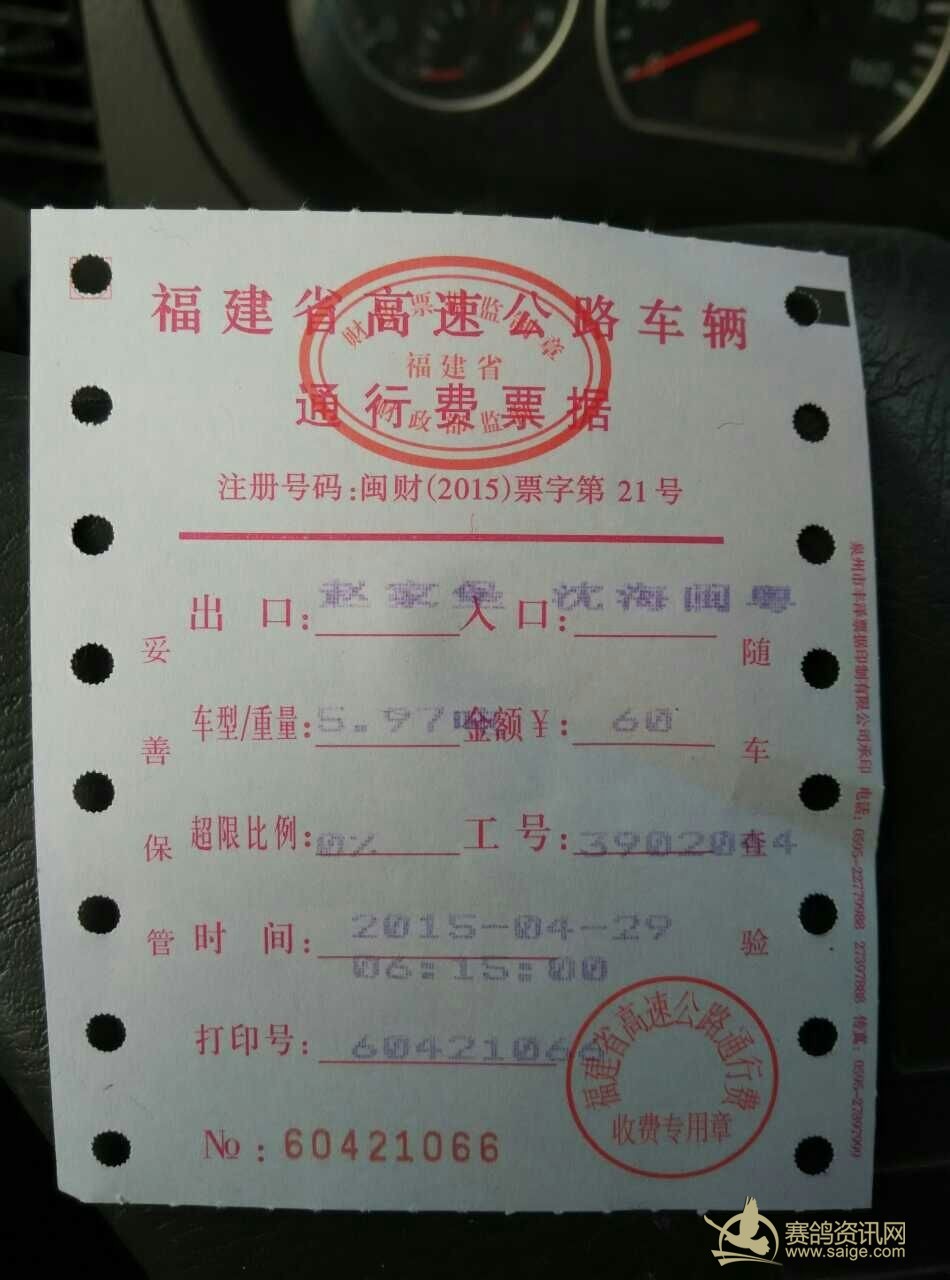 福建省高速公路车辆
通行费票据
福建省
注册号码:闽财(2015)票字第 21号
出 口: 赵家堡 入口: 沈海闽粤
车型/重量: 5.97 金额¥: 60
超限比例: 0% 工 号: 3902044
时 间: 2015-04-29
06:15:00
打印号: 60421066
№ : 60421066
福建省高速公路通行费
收费专用章
妥善保管
随车查验
泉州市丰泽票据印制有限公司承印 电话: 0595-22779988 27397888 传真: 0595-27397999
赛鸽资讯网
www.saige.com